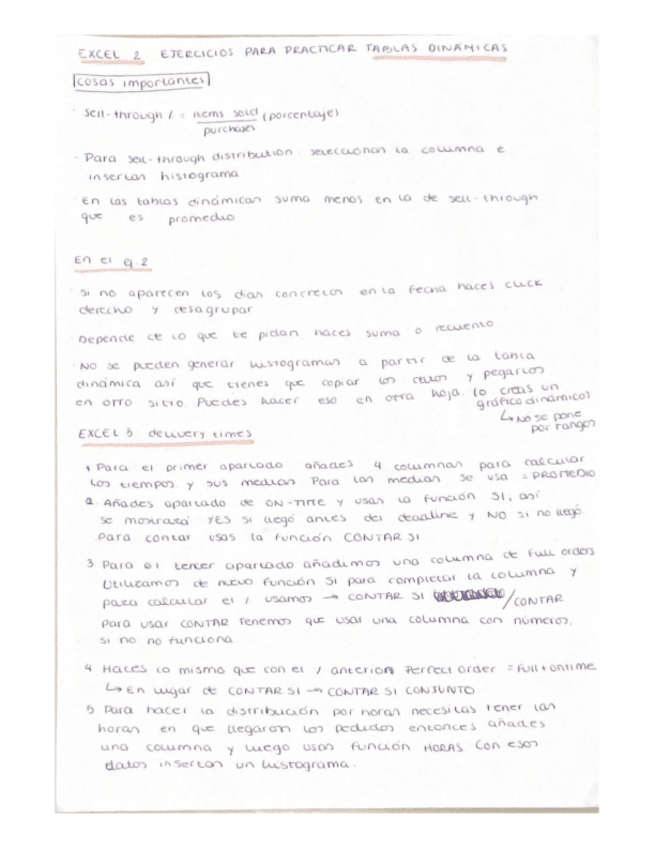 EXCEL 2 EJERCICIOS PARA PRACTICAR TABLAS DINÁMICAS
cosas importantes
· Sell-through % = items sold / purchases (porcentaje)
· Para sell-through distribution: seleccionar la columna e
insertar histograma
· En las tablas dinámicas suma menos en la de sell-through
que es promedio
En el ej. 2
· Si no aparecen los días concretos en la fecha haces click
derecho y desagrupar
· Depende de lo que te pidan haces suma o recuento
· No se pueden generar histogramas a partir de la tabla
dinámica así que tienes que copiar los datos y pegarlos
en otro sitio Puedes hacer eso en otra hoja (o creas un
gráfico dinámico)
↳ No se pone
por rangos
EXCEL 3 delivery times
1 Para el primer apartado añades 4 columnas para calcular
los tiempos y sus medias Para las medias se usa =PROMEDIO
2 Añades apartado de ON-TIME y usas la función SI, así
se mostrará YES si llegó antes del deadline y NO si no llegó.
Para contar usas la función CONTAR SI
3 Para el tercer apartado añadimos una columna de full orders
Utilizamos de nuevo función SI para completar la columna y
para calcular el % usamos → CONTAR SI /CONTAR
Para usar CONTAR tenemos que usar una columna con números,
si no no funciona
4 Haces lo mismo que con el % anterior. Perfect order = full + ontime
↳ En lugar de CONTAR SI → CONTAR SI CONJUNTO
5 Para hacer la distribución por horas necesitas tener las
horas en que llegaron los pedidos entonces añades
una columna y luego usas función HORAS. Con esos
datos insertas un histograma.